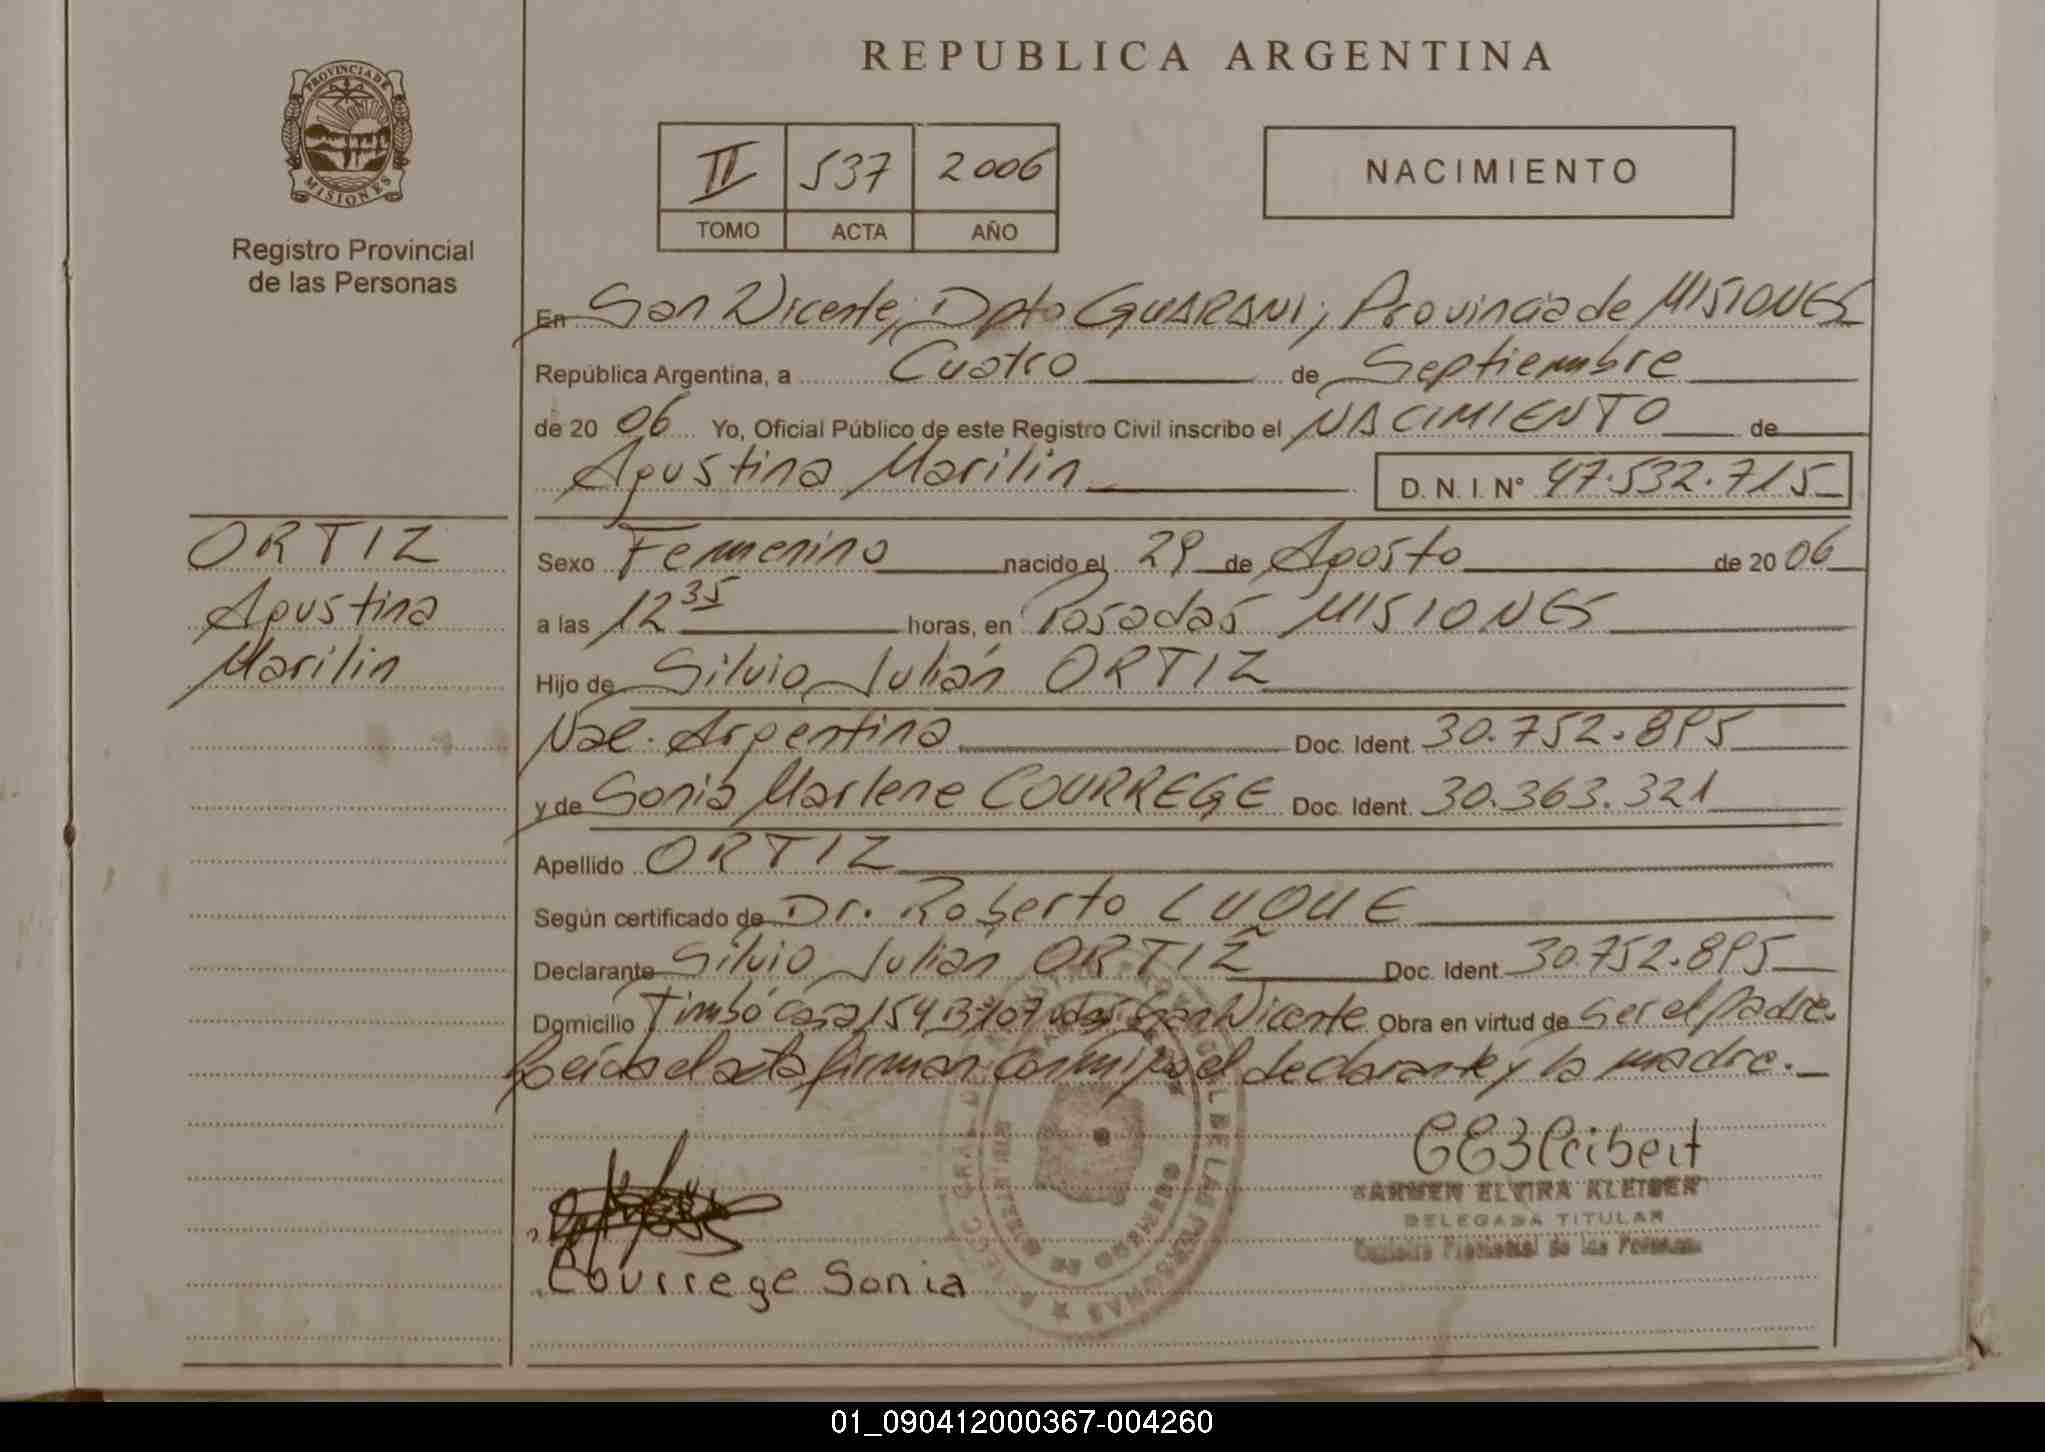 REPUBLICA ARGENTINA
PROVINCIA DE
MISIONES
Registro Provincial
de las Personas
II 537 2006
TOMO ACTA AÑO
NACIMIENTO
En San Vicente, Dpto GUARANI, Provincia de MISIONES
República Argentina, a Cuatro de Septiembre
de 20 06 Yo, Oficial Público de este Registro Civil inscribo el NACIMIENTO de
Agustina Marilin D. N. I. N° 47.532.715
ORTIZ
Agustina
Marilin
Sexo Femenino nacido el 29 de Agosto de 20 06
a las 12 35 horas, en Posadas MISIONES
Hijo de Silvio Julián ORTIZ
Nac. Argentina Doc. Ident. 30.752.895
y de Sonia Marlene COURREGE Doc. Ident. 30.363.321
Apellido ORTIZ
Según certificado de Dr. Roberto LUQUE
Declarante Silvio Julián ORTIZ Doc. Ident. 30.752.895
Domicilio Timbó casa 154 San Vicente Obra en virtud de ser el padre.
Leída el acta firman conmigo el declarante y la madre.
CARMEN ELVIRA KLEIBER
DELEGADA TITULAR
Registro Provincial de las Personas
Courrege Sonia
01_090412000367-004260